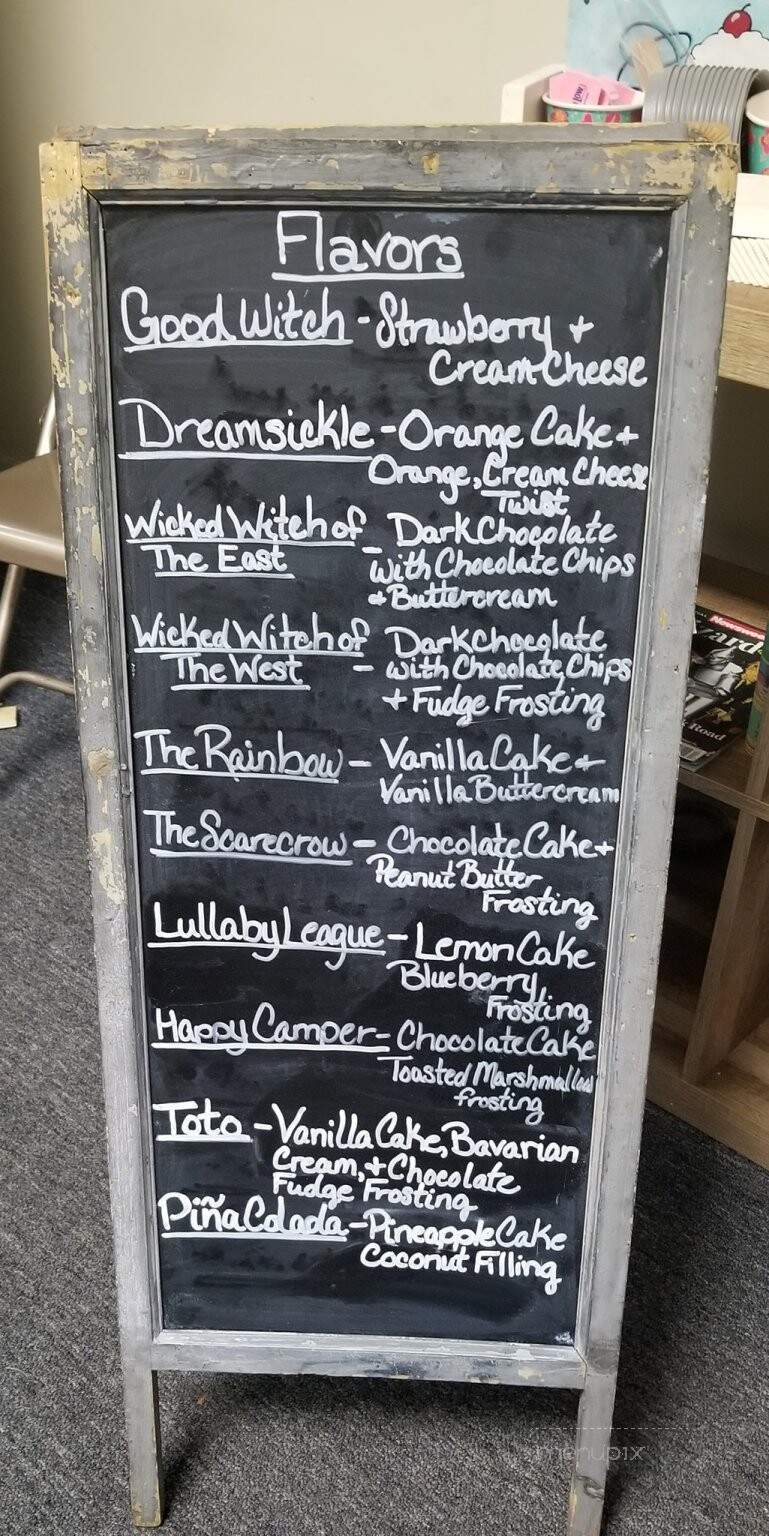 Flavors
Good Witch - Strawberry +
Cream Cheese
Dreamsickle - Orange Cake +
Orange, Cream Cheese
Twist
Wicked Witch of
The East - Dark Chocolate
with Chocolate Chips
+ Buttercream
Wicked Witch of
The West - Dark Chocolate
with Chocolate Chips
+ Fudge Frosting
The Rainbow - Vanilla Cake +
Vanilla Buttercream
The Scarecrow - Chocolate Cake +
Peanut Butter
Frosting
Lullaby League - Lemon Cake
Blueberry
Frosting
Happy Camper - Chocolate Cake
Toasted Marshmallow
frosting
Toto - Vanilla Cake, Bavarian
Cream, + Chocolate
Fudge Frosting
Piña Colada - Pineapple Cake
Coconut Filling
Newsweek
Road
menupix